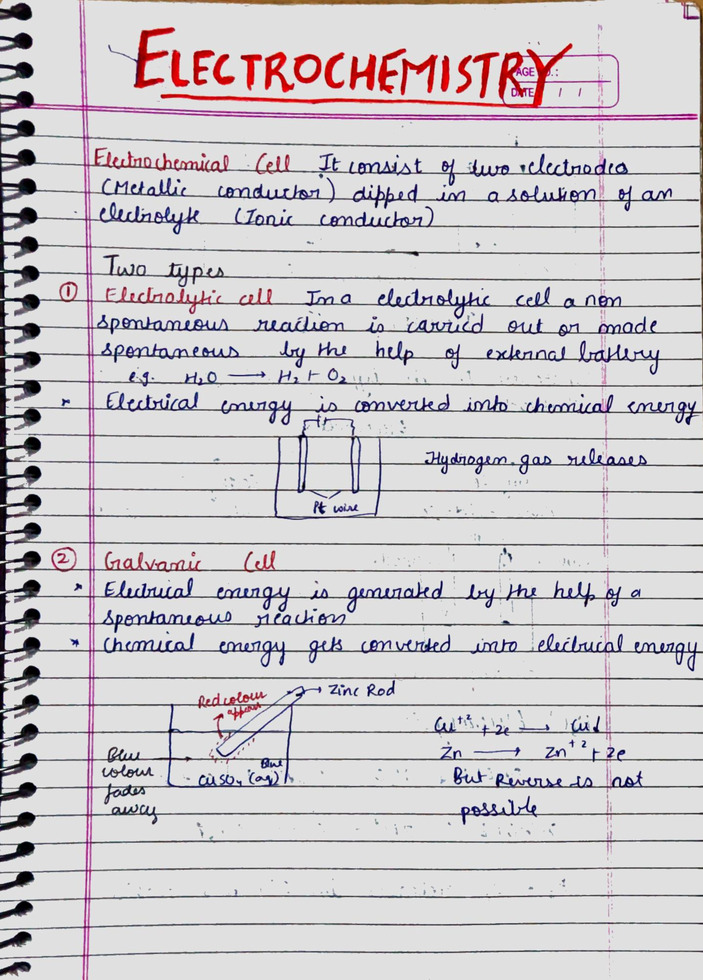 ELECTROCHEMISTRY
PAGE NO.:
DATE: / /
Electrochemical Cell It consist of two electrodes
(Metallic conductor) dipped in a solution of an
electrolyte (Ionic conductor)
Two types
① Electrolytic cell In a electrolytic cell a non
spontaneous reaction is carried out or made
spontaneous by the help of external battery
e.g. H₂O → H₂ + O₂
* Electrical energy is converted into chemical energy
Hydrogen gas releases
Pt wire
② Galvanic Cell
* Electrical energy is generated by the help of a
spontaneous reaction
* Chemical energy gets converted into electrical energy
Red colour
appears
Zinc Rod
Blue
colour
fades
away
Blue
CuSO₄ (aq)
Cu⁺² + 2e → Cu↓
Zn → Zn⁺² + 2e
But Reverse is not
possible